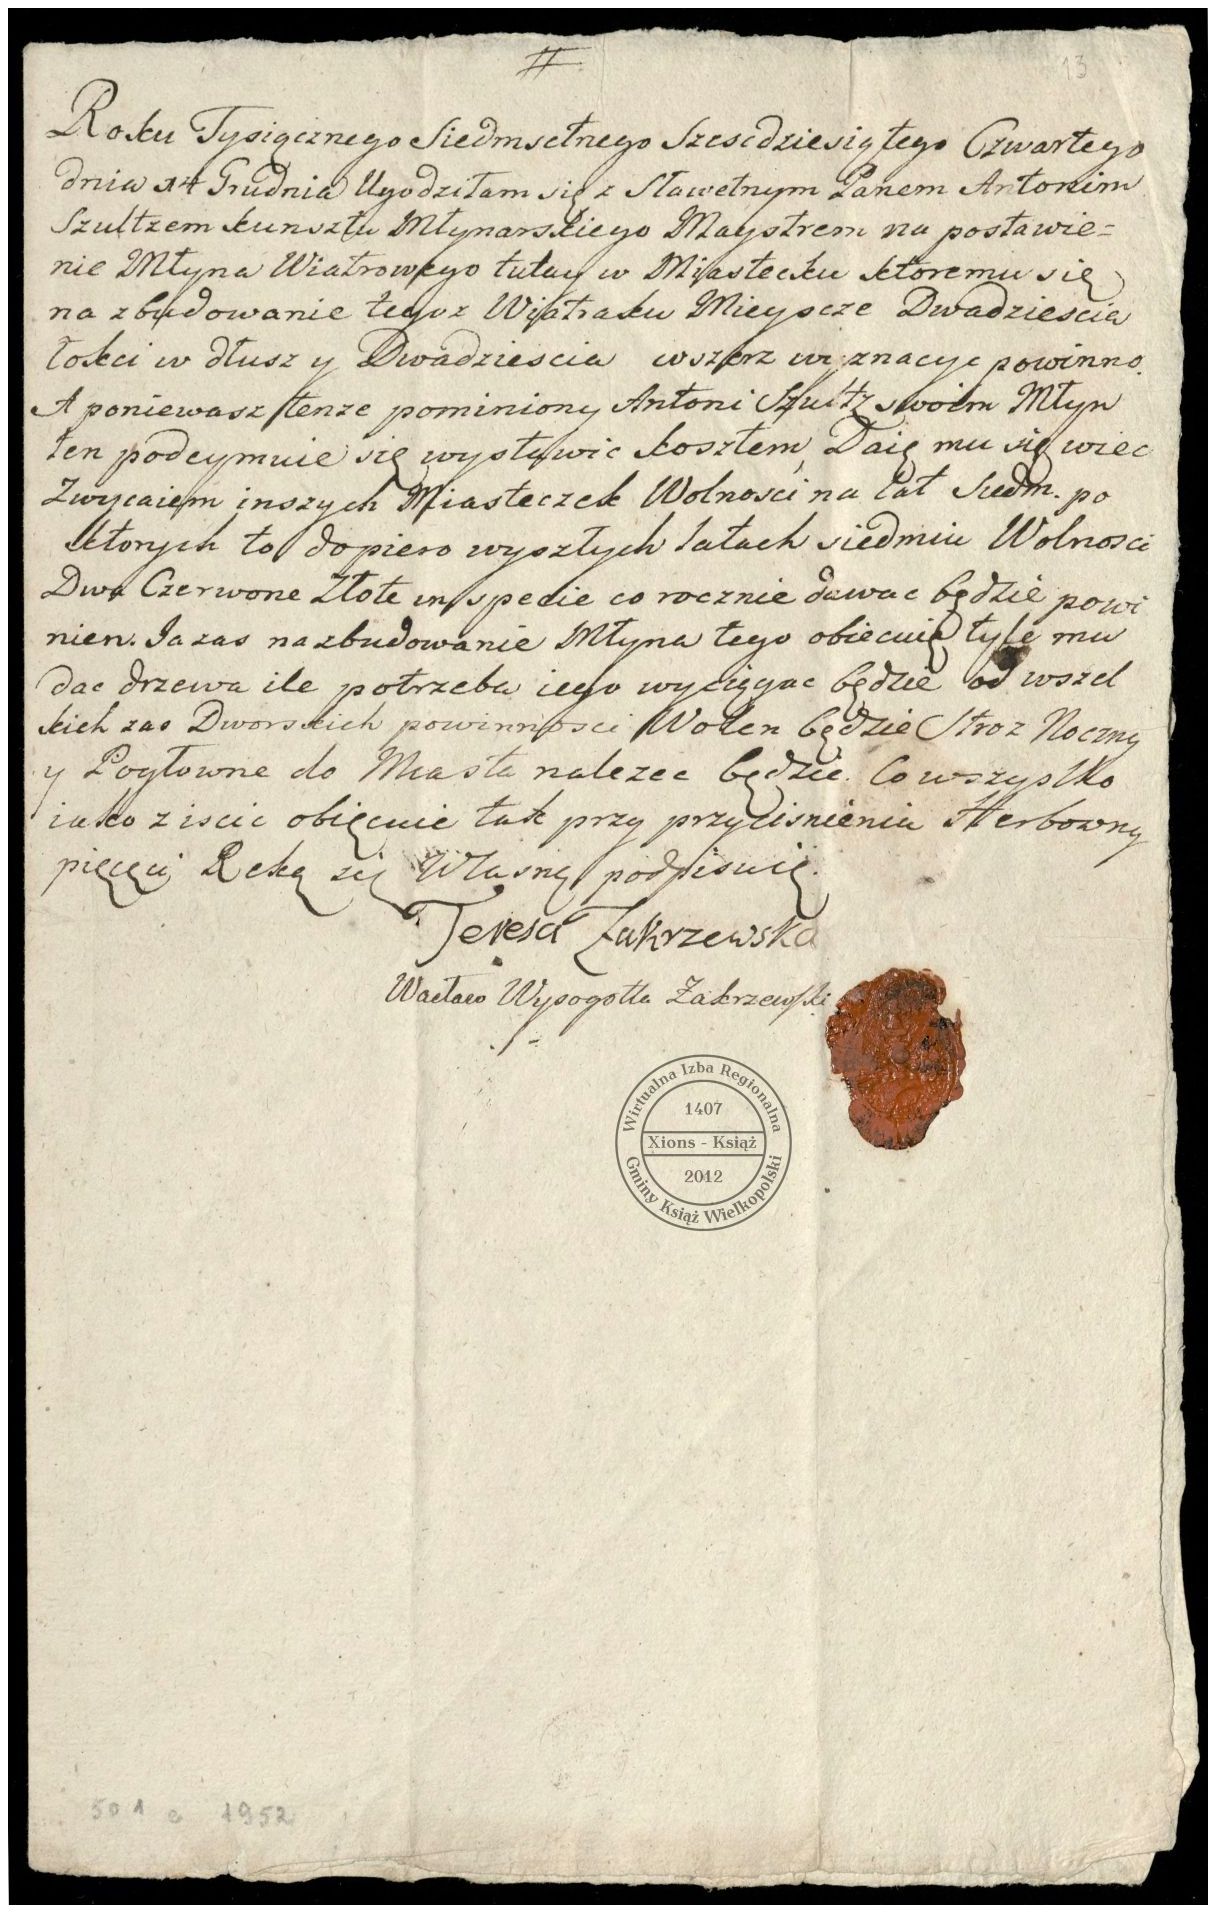 #
13
Roku Tysiącznego Siedmsetnego Szescdziesiątego Czwartego
dnia 14 Grudnia Ugodziłam się z Sławetnym Panem Antonim
Szultzem kunsztu Młynarskiego Maystrem na postawie=
nie Młyna Wiatrowego tutay w Miastecku ktoremu się
na zbudowanie tegoz Wiatraku Mieyscze Dwadziescia
łokci w dłusz y Dwadziescia wszerz wyznacyc powinno.
A poniewasz tenze pominiony Antoni Szultz swoim Młyn
ten podeymuie się wystawic kosztem, Daię mu się wiec
Zwycaiem inszych Miasteczek Wolnosci na Lat Siedm. po
ktorych to dopiero wyszłych latach siedmiu Wolnosci
Dwa Czerwone Złote in specie co rocznie dawac będzie powi
nien. Ja zas na zbudowanie Młyna tego obiecuię tyle mu
dac drzewa ile potrzeba iego wyciągac będzie od wszel
kich zas Dworskich powinnosci Wolen będzie Stroz Nocny
y Pogłowne do Miasta nalezec będzie. Co wszystko
iako ziscic obięcuie tak przy przycisnieniu Herbowny
pięcęci Ręką się Własną podpisuię.
Teresa Zakrzewska
Wacław Wyssogotta Zakrzewski
Wirtualna Izba Regionalna
1407
Xions - Książ
2012
Gminy Książ Wielkopolski
501 e 1952